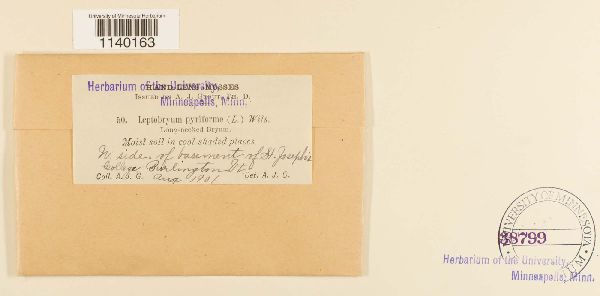 University of Minnesota Herbarium
1140163
Herbarium of the University,
Minneapolis, Minn.
ISSUED BY A. J. GROUT, PH. D.
50. Leptobryum pyriforme (L.) Wils.
Long-necked Bryum.
Moist soil in cool shaded places
N. side of basement of St. Joseph's
College Burlington Vt.
Coll. A. J. G. Aug 1901 Det. A. J. G.
UNIVERSITY OF MINNESOTA
38799
Herbarium of the University,
Minneapolis, Minn.